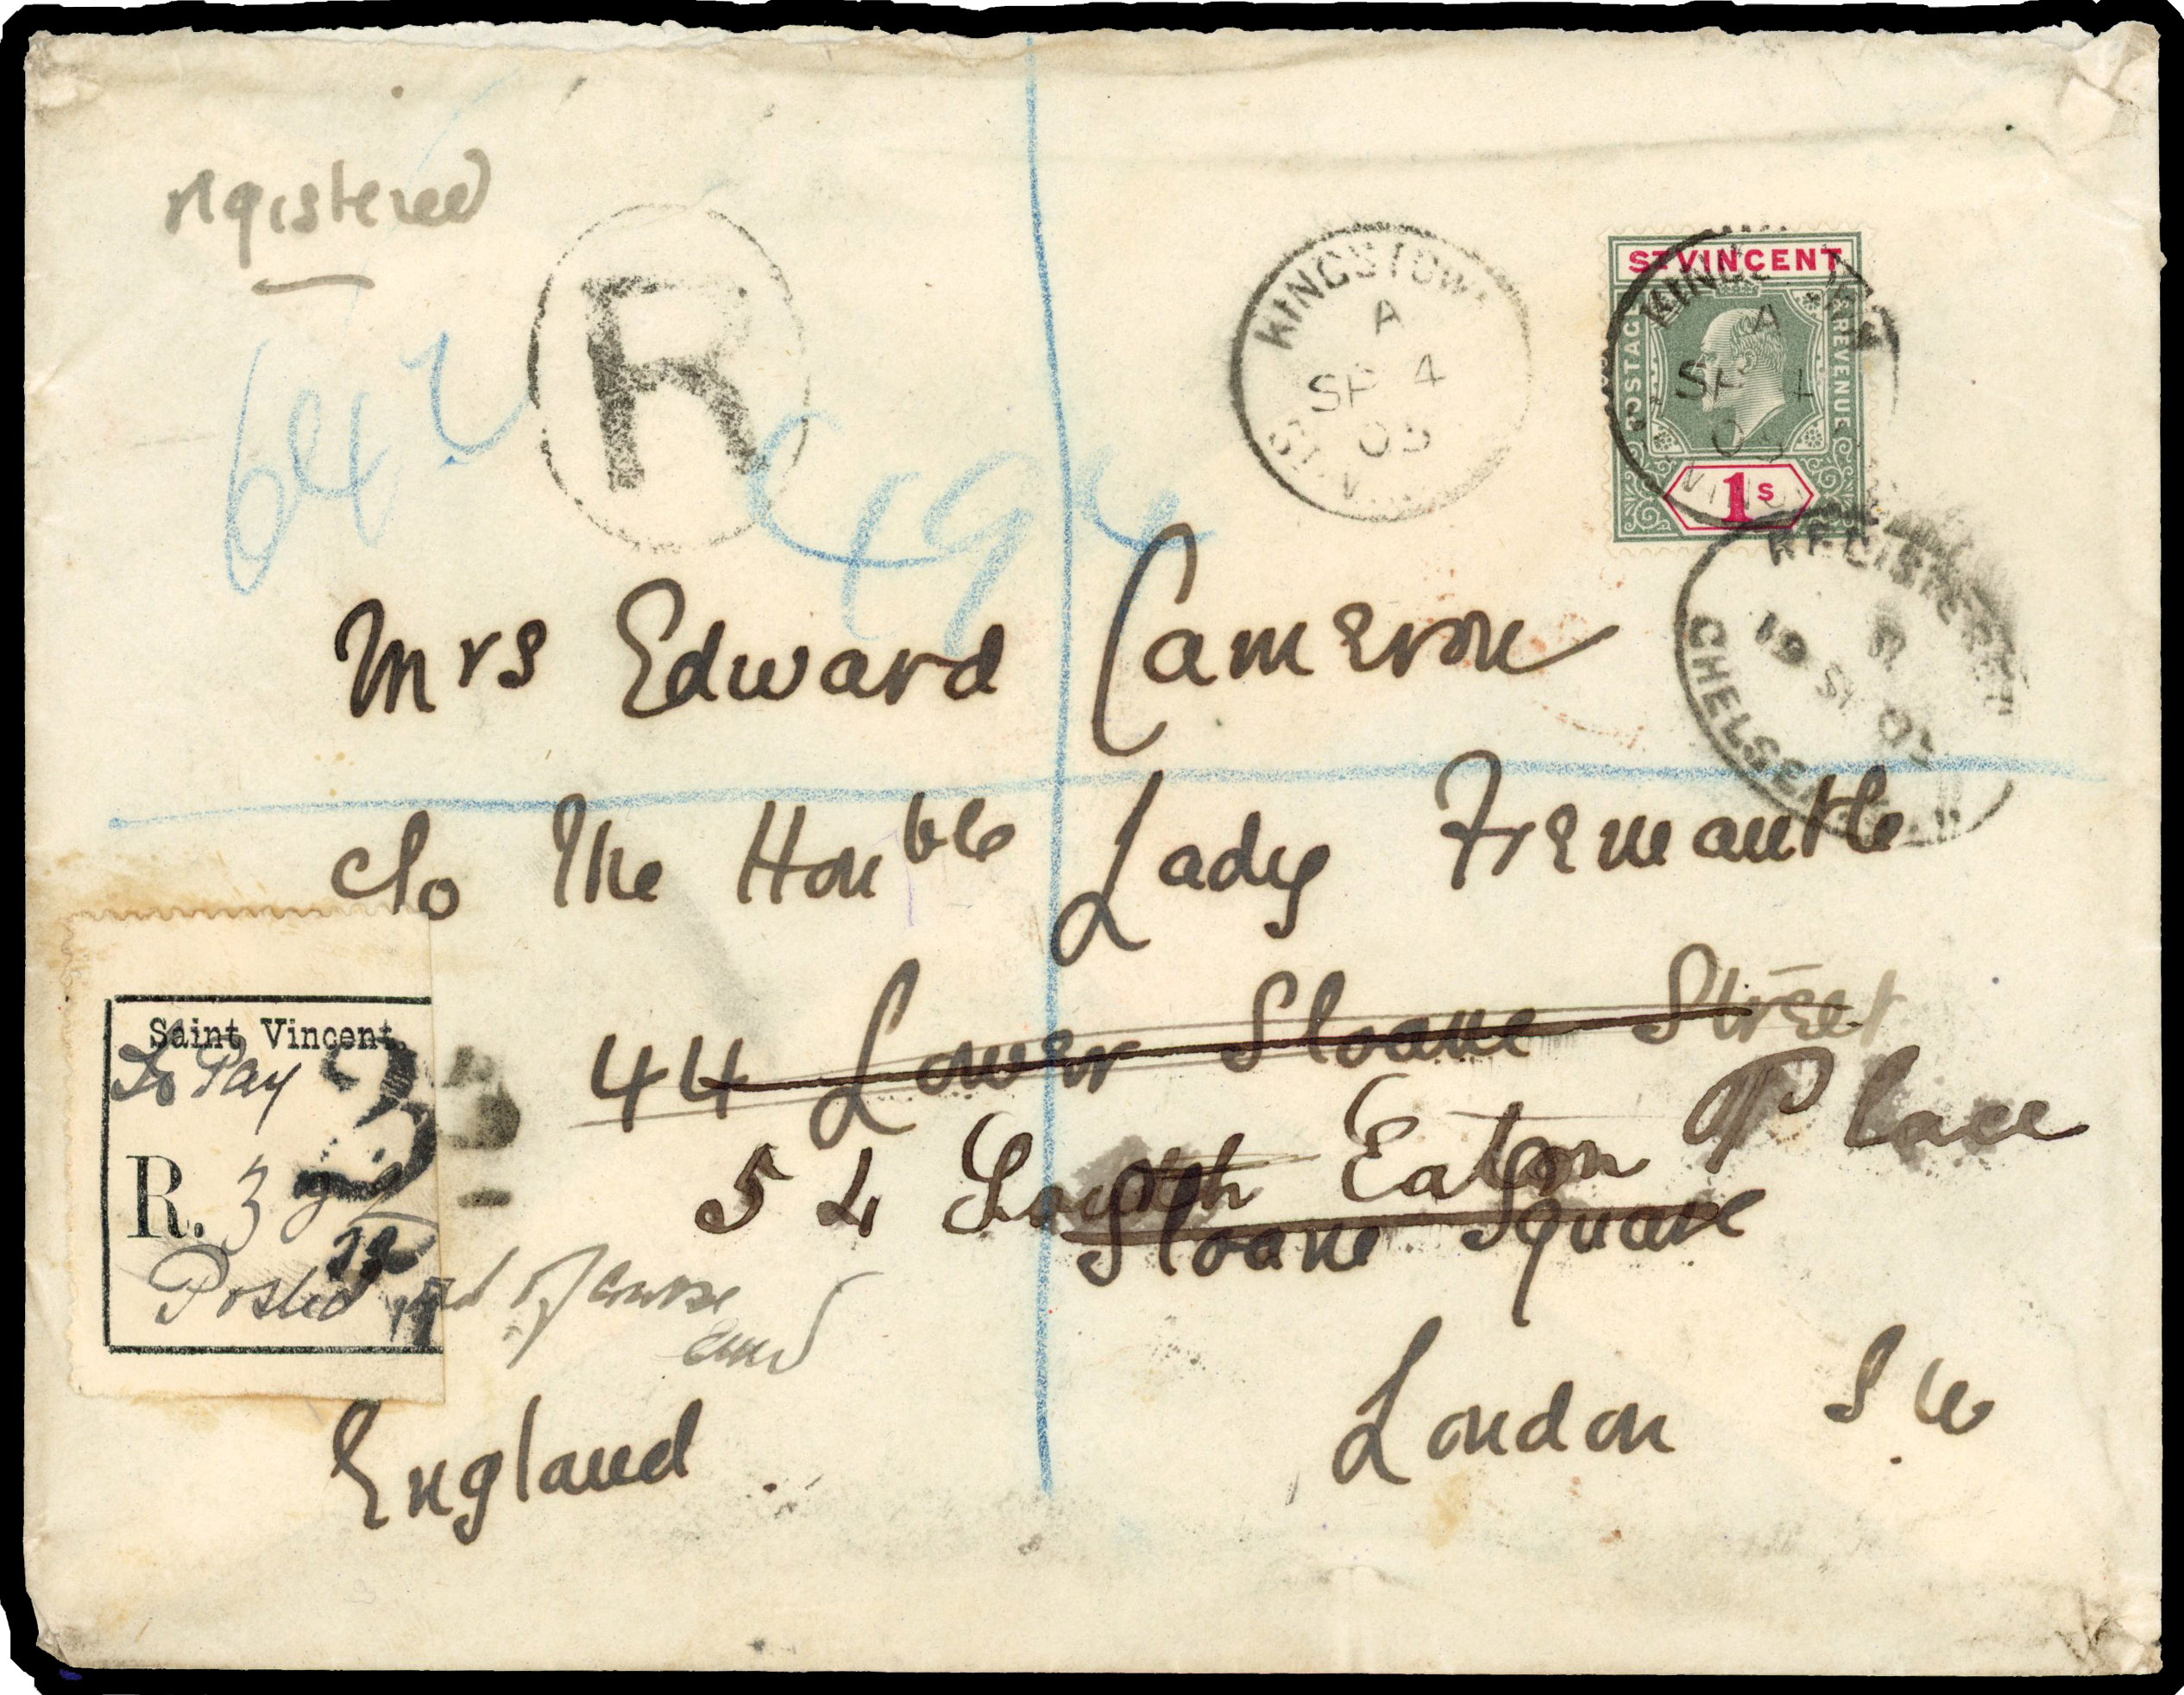 registered
R
642
KINGSTOWN
A
SP 4
05
ST VINCENT
POSTAGE
REVENUE
1s
A
REGISTERED
19 SP 05
CHELSEA
Mrs Edward Cameron
c/o The Honble Lady Fremantle
44 Lower Sloane Street
54 South Eaton Place
Sloane Square
Saint Vincent.
To Pay
R. 3
Posted of course
England
London S W